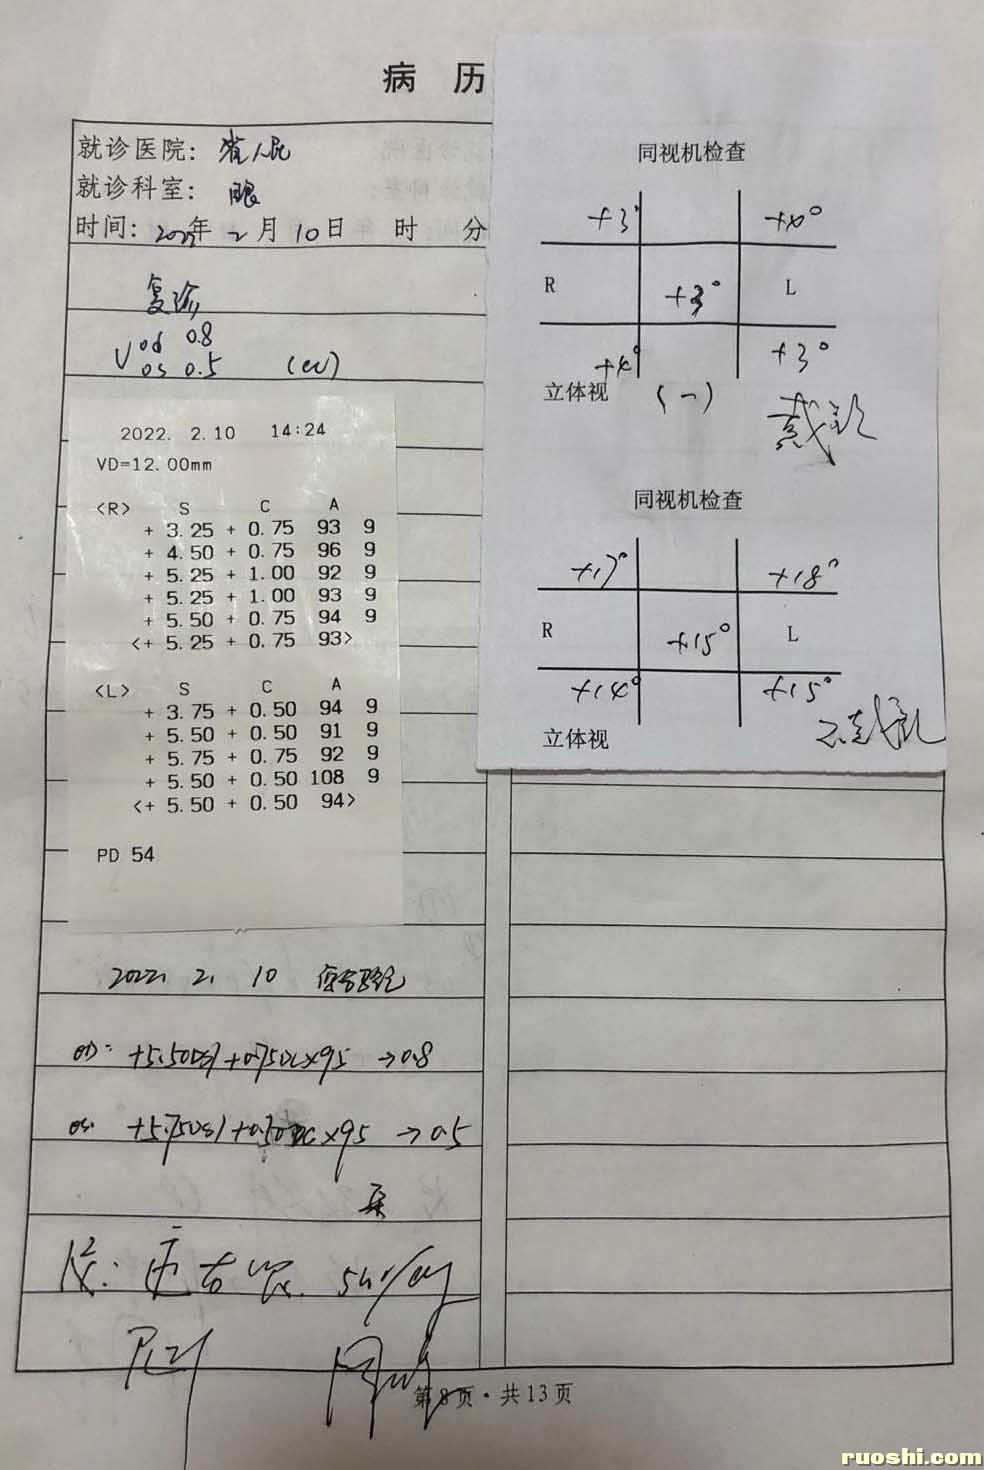 病 历
就诊医院: 省人民
就诊科室: 眼
时间: 2022年 2月 10日 时 分
复诊
Vod 0.8
os 0.5 (cc)
2022. 2.10 14:24
VD=12.00mm
<R> S C A
+ 3.25 + 0.75 93 9
+ 4.50 + 0.75 96 9
+ 5.25 + 1.00 92 9
+ 5.25 + 1.00 93 9
+ 5.50 + 0.75 94 9
<+ 5.25 + 0.75 93>
<L> S C A
+ 3.75 + 0.50 94 9
+ 5.50 + 0.50 91 9
+ 5.75 + 0.75 92 9
+ 5.50 + 0.50 108 9
<+ 5.50 + 0.50 94>
PD 54
2022. 2. 10
OD: +5.50DS/+0.75DC×95 →0.8
OS: +5.75DS/+0.50DC×95 →0.5
第8页·共13页
同视机检查
+3° +4°
R +3° L
+4° +3°
立体视 (一)
同视机检查
+17° +18°
R +15° L
+14° +15°
立体视
ruoshi.com